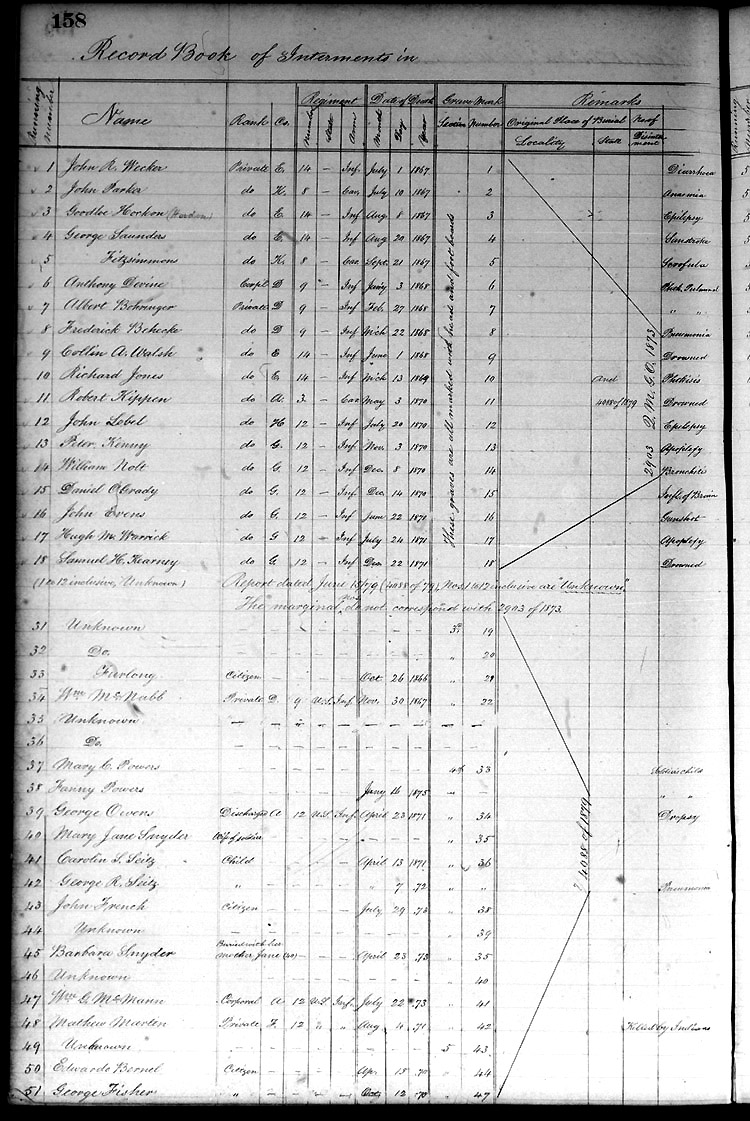 158
Record Book of Interments in
Running Number Name Rank Co. Regiment Number State Arm Date of Death Month Day Year Grave Mark Section Number Remarks Original Place of Burial Locality State No. of Disinterment
1 John R. Wecker Private E. 14 — Inf. July 1 1867 1 Diarrhoea
2 John Parker do K. 8 — Cav. July 10 1867 2 Anaemia
3 Goodloe Hockon (Hardin) do E. 14 — Inf Aug 8 1867 3 Epilepsy
4 George Saunders do E. 14 — Inf Aug 20 1867 4 Sunstroke
5 Fitzsimmons do K. 8 — Cav. Sept. 21 1867 5 Scrofula
6 Anthony Devine Corpl D 9 — Inf Jany 3 1868 6
7 Albert Behringer Private D 9 — Inf Feb. 27 1868 7 " "
8 Frederick Behecke do D 9 — Inf Mch 22 1868 8 Pneumonia
9 Collin A. Walsh do E 14 — Inf. June 1 1868 9 Drowned
10 Richard Jones do E. 14 — Inf Mch 13 1869 10 and Phthisis
11 Robert Kippen do A. 3. — Cav May 3 1870 11 4088 of 1879 Drowned
12 John Lebel do H 12 — Inf July 20 1870 12 Epilepsy
13 Peter Kenny do G. 12 — Inf Nov. 3 1870 13 Apoplexy
14 William Nolt do G. 12 — Inf Dec. 8 1870 14 Bronchitis
15 Daniel O'Grady do G. 12 — Inf. Dec. 14 1870 15 Infl. of Brain
16 John Evens do G. 12 — Inf June 22 1871 16 Gunshot
17 Hugh M. Warrick do G 12 — Inf July 24 1871 17 Apoplexy
18 Samuel H. Kearney do G. 12 — Inf Dec 22 1871 18 Drowned
These graves are all marked with head and foot boards
2903 Q. M. G. O. 1873
(1 to 12 inclusive, Unknown) Report dated June 15/79 (4088 of 79), Nos. 1 to 12 inclusive are "Unknown".
The marginal nos. do not correspond with 2903 of 1873.
31 Unknown — — — — — — — — 3d 19
32 Do. — — — — — — — — " 20
33 Furlong Citizen — — — — Oct. 26 1866 " 21
34 Wm McNabb Private D. 9 U.S. Inf. Nov. 30 1867 " 22
35 Unknown — — — — — — — — — —
36 Do. — — — — — — — —
37 Mary C. Powers — — — — — — — — 4th 33 Soldiers child
38 Fanny Powers — — — — — Jany 16 1875 — " "
39 George Owens Discharged A 12 U.S. Inf. April 23 1871 " 34 Dropsy
40 Mary Jane Snyder Wife of soldier — — — — — — — " 35
41 Carolin L. Seitz Child — — — — April 13 1871 " 36
42 George R. Seitz " — — — — " 7 .72 " " Pneumonia
43 John French Citizen — — — — July 29 .73 " 38
44 Unknown — — — — — — — — " 39
45 Barbara Snyder Buried with her mother, Jane (40) — — — April 23 .73 " 35
46 Unknown — — — — — — — — " 40
47 Wm G. McMann Corporal A 12 U.S. Inf. July 22 .73 " 41
48 Mathew Marten Private F. 12 " " Aug 4 .71 " 42 Killed by Indians
49 Unknown — — — — — — — — 5 43
50 Edwardo Bernel Citizen — — — — Apr. 13 .70 " 44
51 George Fisher " — — — — 12 .70 " 47
? 4088 of 1879